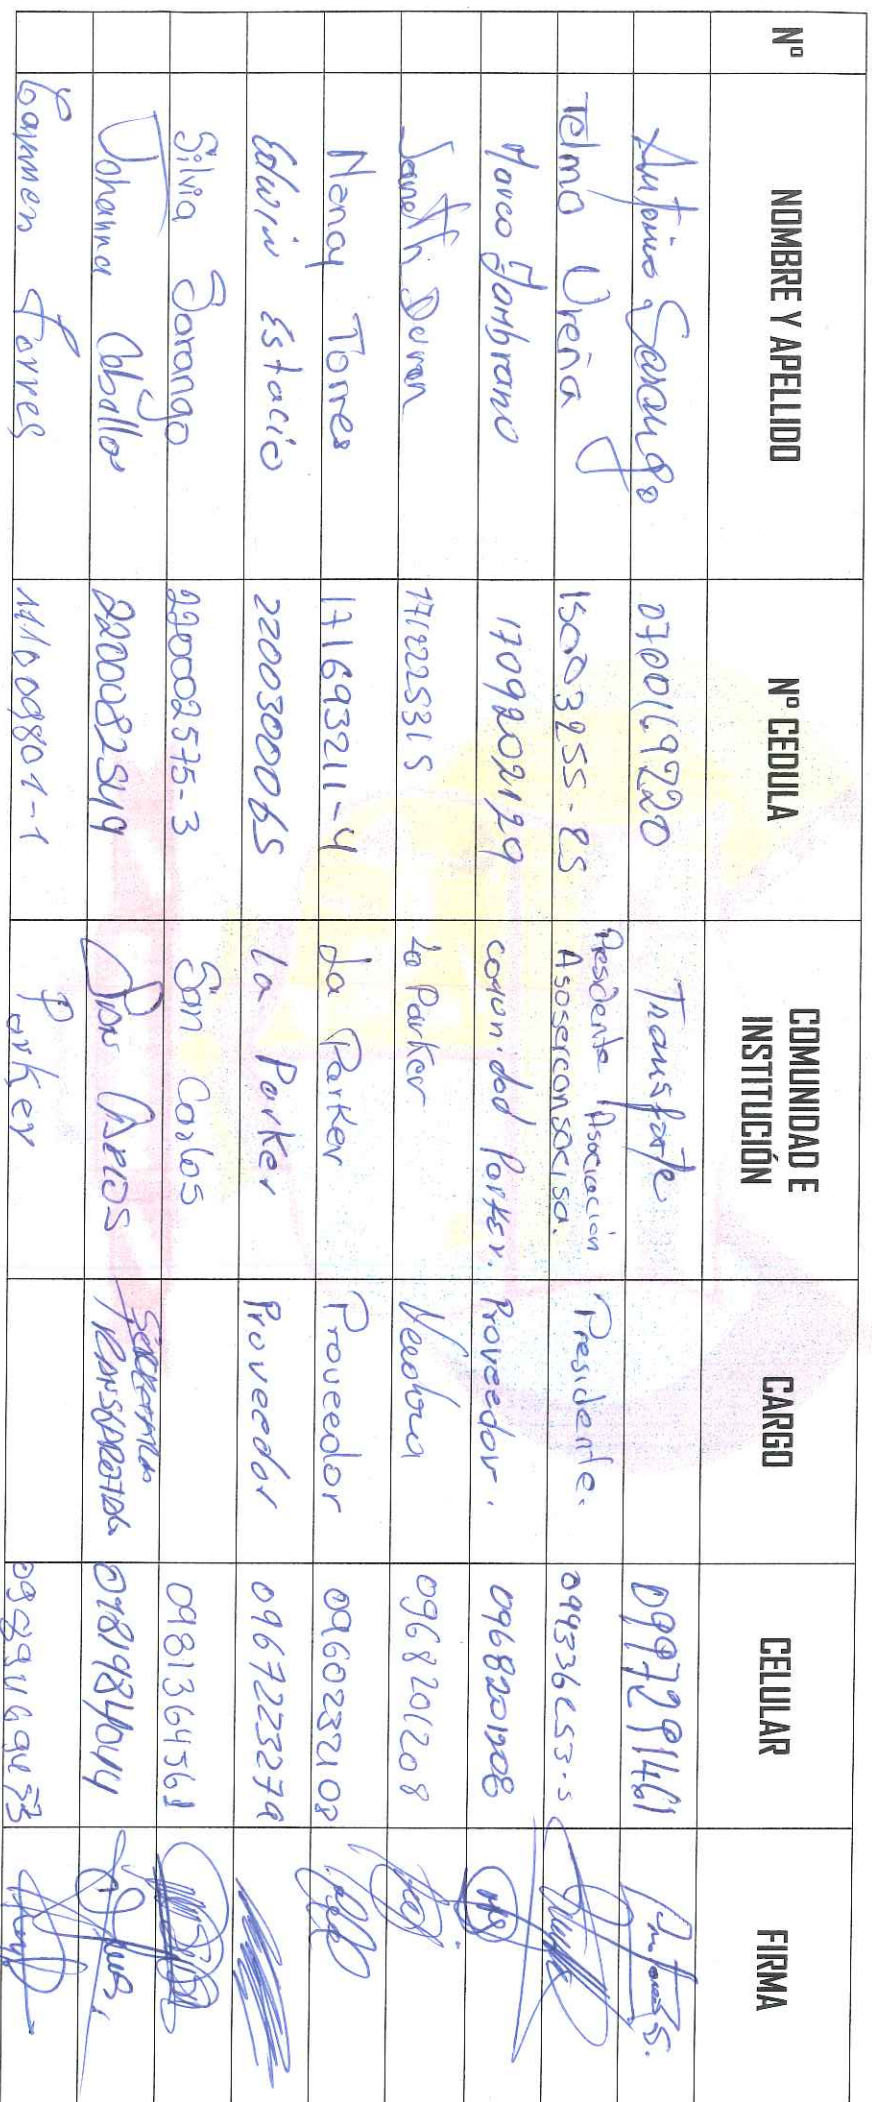 Nº NOMBRE Y APELLIDO Nº CEDULA COMUNIDAD E INSTITUCIÓN CARGO CELULAR FIRMA
Antonio Sarango 0700169220 Transporte 0997291461 Antonio S.
Telmo Ureña Presidente Asociación Asoserconsocisa. Presidente.
Marco Zambrano 1709202129 comunidad Parker. Proveedor. 0968201208
Janeth Duran 1712225315 La Parker 0968201208
Nancy Torres 171693211-4 La Parker Proveedor
Edwin Estacio 2200300065 la Parker Proveedor 0967223279
Silvia Sarango 220002575-3 San Carlos 0981364561
Johanna Caballo 2200082549 San Carlos 0981984044
Carmen Torres 171009801-1 Parker